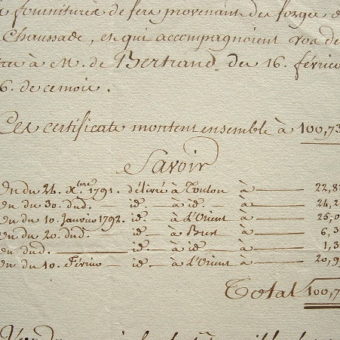 fournitures de fers provenant des forges
Chaussade, et qui accompagnoient
à M. de Bertrand du 16. février
6. de ce mois.
Ces certificats montent ensemble à 100,73
Savoir
en du 24. Xbre 1791. délivré à Toulon à 22,8
en du 30. dud. id à id à 24,2
en du 10. Janvier 1792. id à l'Orient à 25,0
en du 20. dud. id à Brest à 6,3
en dud. id à id à 1,3
en du 10. Février id à l'Orient à 20,9
Total 100,7